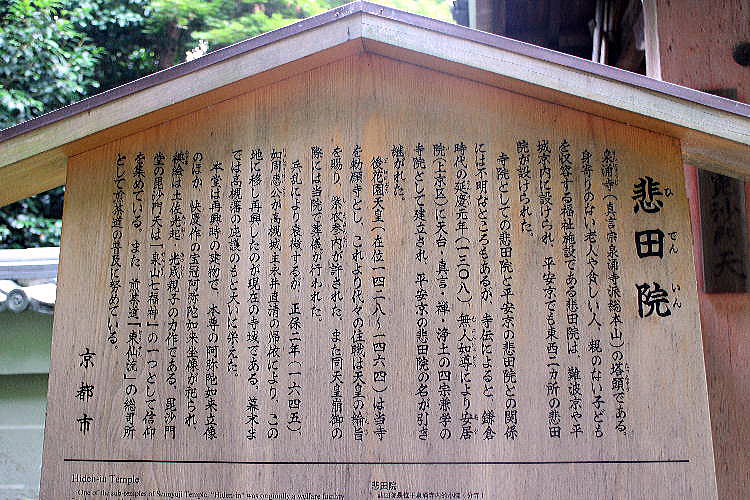 悲田院
ひでんいん
泉涌寺(真言宗泉涌寺派総本山)の塔頭である。
身寄りのない老人や貧しい人、親のない子ども
を収容する福祉施設である悲田院は、難波京や平
城京内に設けられ、平安京でも東西二カ所の悲田
院が設けられた。
寺院としての悲田院と平安京の悲田院との関係
には不明なところもあるが、寺伝によると、鎌倉
時代の延慶元年(一三〇八)、無人如導により安居
院(上京区)に天台・真言・禅・浄土の四宗兼学の
寺院として建立され、平安京の悲田院の名が引き
継がれた。
後花園天皇(在位一四二八〜一四六四)は当寺
を勅願寺とし、これより代々の住職は天皇の綸旨
を賜り、紫衣参内が許された。また同天皇崩御の
際には当院で葬儀が行われた。
兵乱により衰微するが、正保二年(一六四五)、
如周恵公が高槻城主永井直清の帰依により、この
地に移し再興したのが現在の寺域である。幕末ま
では高槻藩の庇護のもと大いに栄えた。
本堂は再興時の建物で、本尊の阿弥陀如来立像
のほか、快慶作の宝冠阿弥陀如来坐像が祀られ、
襖絵は土佐光起、光成親子の力作である。毘沙門
堂の毘沙門天は「泉山七福神」の一つとして信仰
を集めている。また、煎茶道「東仙流」の総司所
として煎茶道の普及に努めている。
京都市
Hiden-in Temple
One of the sub-temples of Sennyuji Temple, "Hiden-in" was originally a welfare facility
悲田院